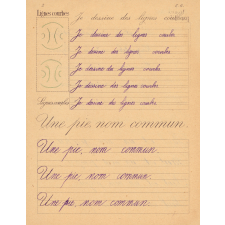 Lignes courbes Je dessine des lignes courbes.
Je dessine des lignes courbes.
Je dessine des lignes courbes.
Je dessine des lignes courbes.
Je dessine des lignes courbes.
Lignes courbes Je dessine des lignes courbes.
Une pie, nom commun.
Une pie, nom commun.
Une pie, nom commun.
Une pie, nom commun.